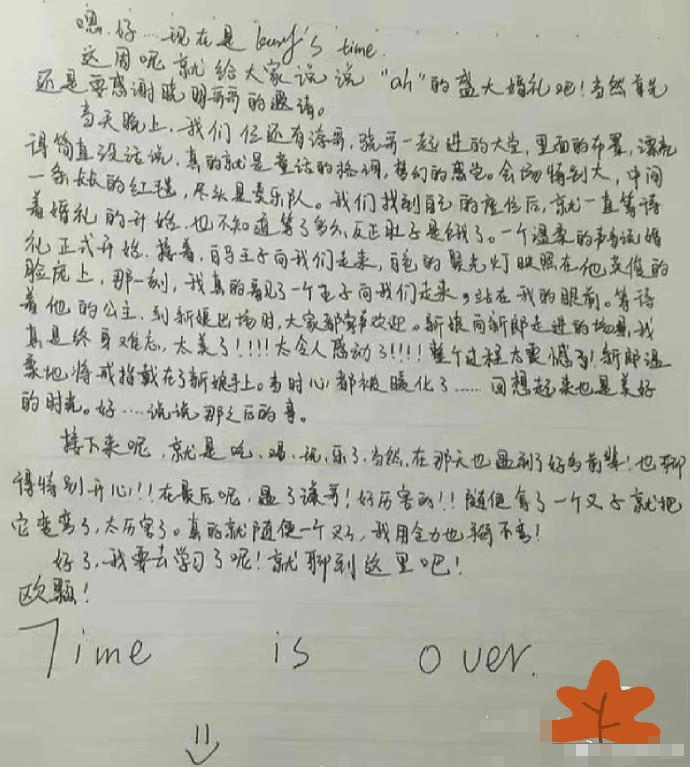 嗯, 好… 现在是 kurf's time.
这周呢 就给大家说说 "ah"的盛大婚礼吧! 当然首先
还是要感谢晓明哥哥的邀请。
当天晚上, 我们 还有涛哥, 骁哥一起进的大堂, 里面的布置, 漂亮
得简直没话说, 真的就是童话的格调, 梦幻的感觉。会场特别大, 中间
一条长长的红毯, 尽头是交乐队。我们找到自己的座位后, 就一直等待
着婚礼的开始, 也不知道等了多久, 反正肚子是饿了。一个温柔的声音说婚
礼正式开始, 接着, 白马王子向我们走来, 白色的聚光灯映照在他英俊的
脸庞上, 那一刻, 我真的看见了一个王子向我们走来, 站在我的眼前。等待
着他的公主, 到新娘出场时, 大家都掌声欢迎。新娘向新郎走进的场景, 我
真是终身难忘, 太美了!!!! 太令人感动了!!!! 整个过程太震憾了! 新郎温
柔地将戒指戴在了新娘手上。当时心都被暖化了…… 回想起来也是美好
的时光。好…… 说说那之后的事。
接下来呢, 就是吃、喝、玩、乐了, 当然, 在那天也遇到了好多前辈! 也聊
得特别开心!! 在最后呢, 遇了谦哥! 好厉害的!! 随便拿了一个叉子就把
它弯弯了, 太厉害了。真的就随便一个叉子, 我用全力也掰不弯!
好了, 我要去学习了呢! 就聊到这里吧!
欧颗!
Time is over.